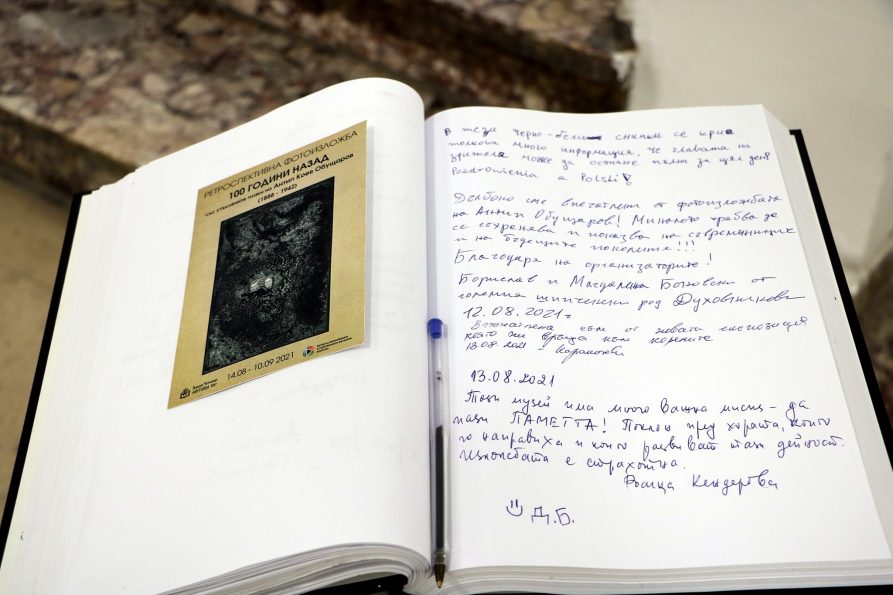 РЕТРОСПЕКТИВНА ФОТОИЗЛОЖБА
100 ГОДИНИ НАЗАД
със стъклените плаки на Антип Коев Обущаров
(1888 - 1942)
14.08 - 10.09 2021
В тези черно-бели снимки се крие
толкова много информация, че главата на
зрителя може да остане пълна за цял ден!
Pozdrowienia z Polski!
Дълбоко сме впечатлени от фотоизложбата
на Антип Обущаров! Миналото трябва да
се съхранява и показва на съвременниците
и на бъдещите поколения!!!
Благодаря на организаторите!
Борислав и Магдалена от
големия шипченски род
12.08.2021г
Впечатлена съм от новата експозиция
която ме връща към корените
13.08 2021 -
13.08.2021
Този музей има много важна мисия - да
пази ПАМЕТТА! Поклон пред хората, които
го направиха и които развиват тази дейност.
Изложбата е страхотна.
Кендерова
Д.Б.